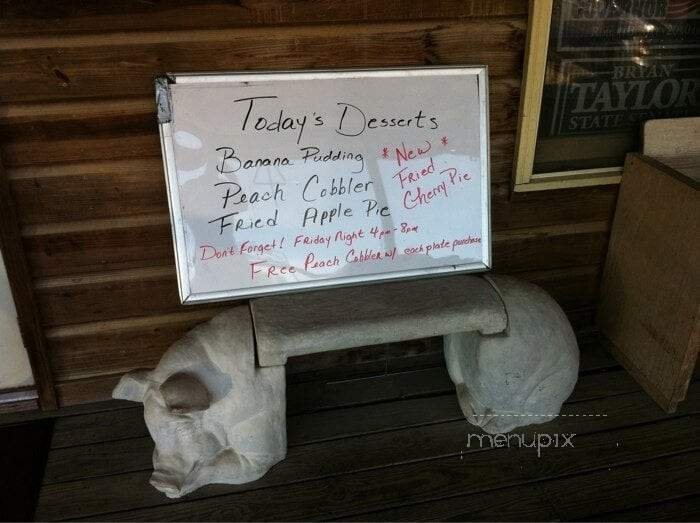 Today's Desserts
Banana Pudding
Peach Cobbler
Fried Apple Pie
* New *
Fried
Cherry Pie
Don't Forget! Friday Night 4pm-8pm
Free Peach Cobbler w/ each plate purchase
GOVERNOR
BRYAN
TAYLOR
STATE
menupix